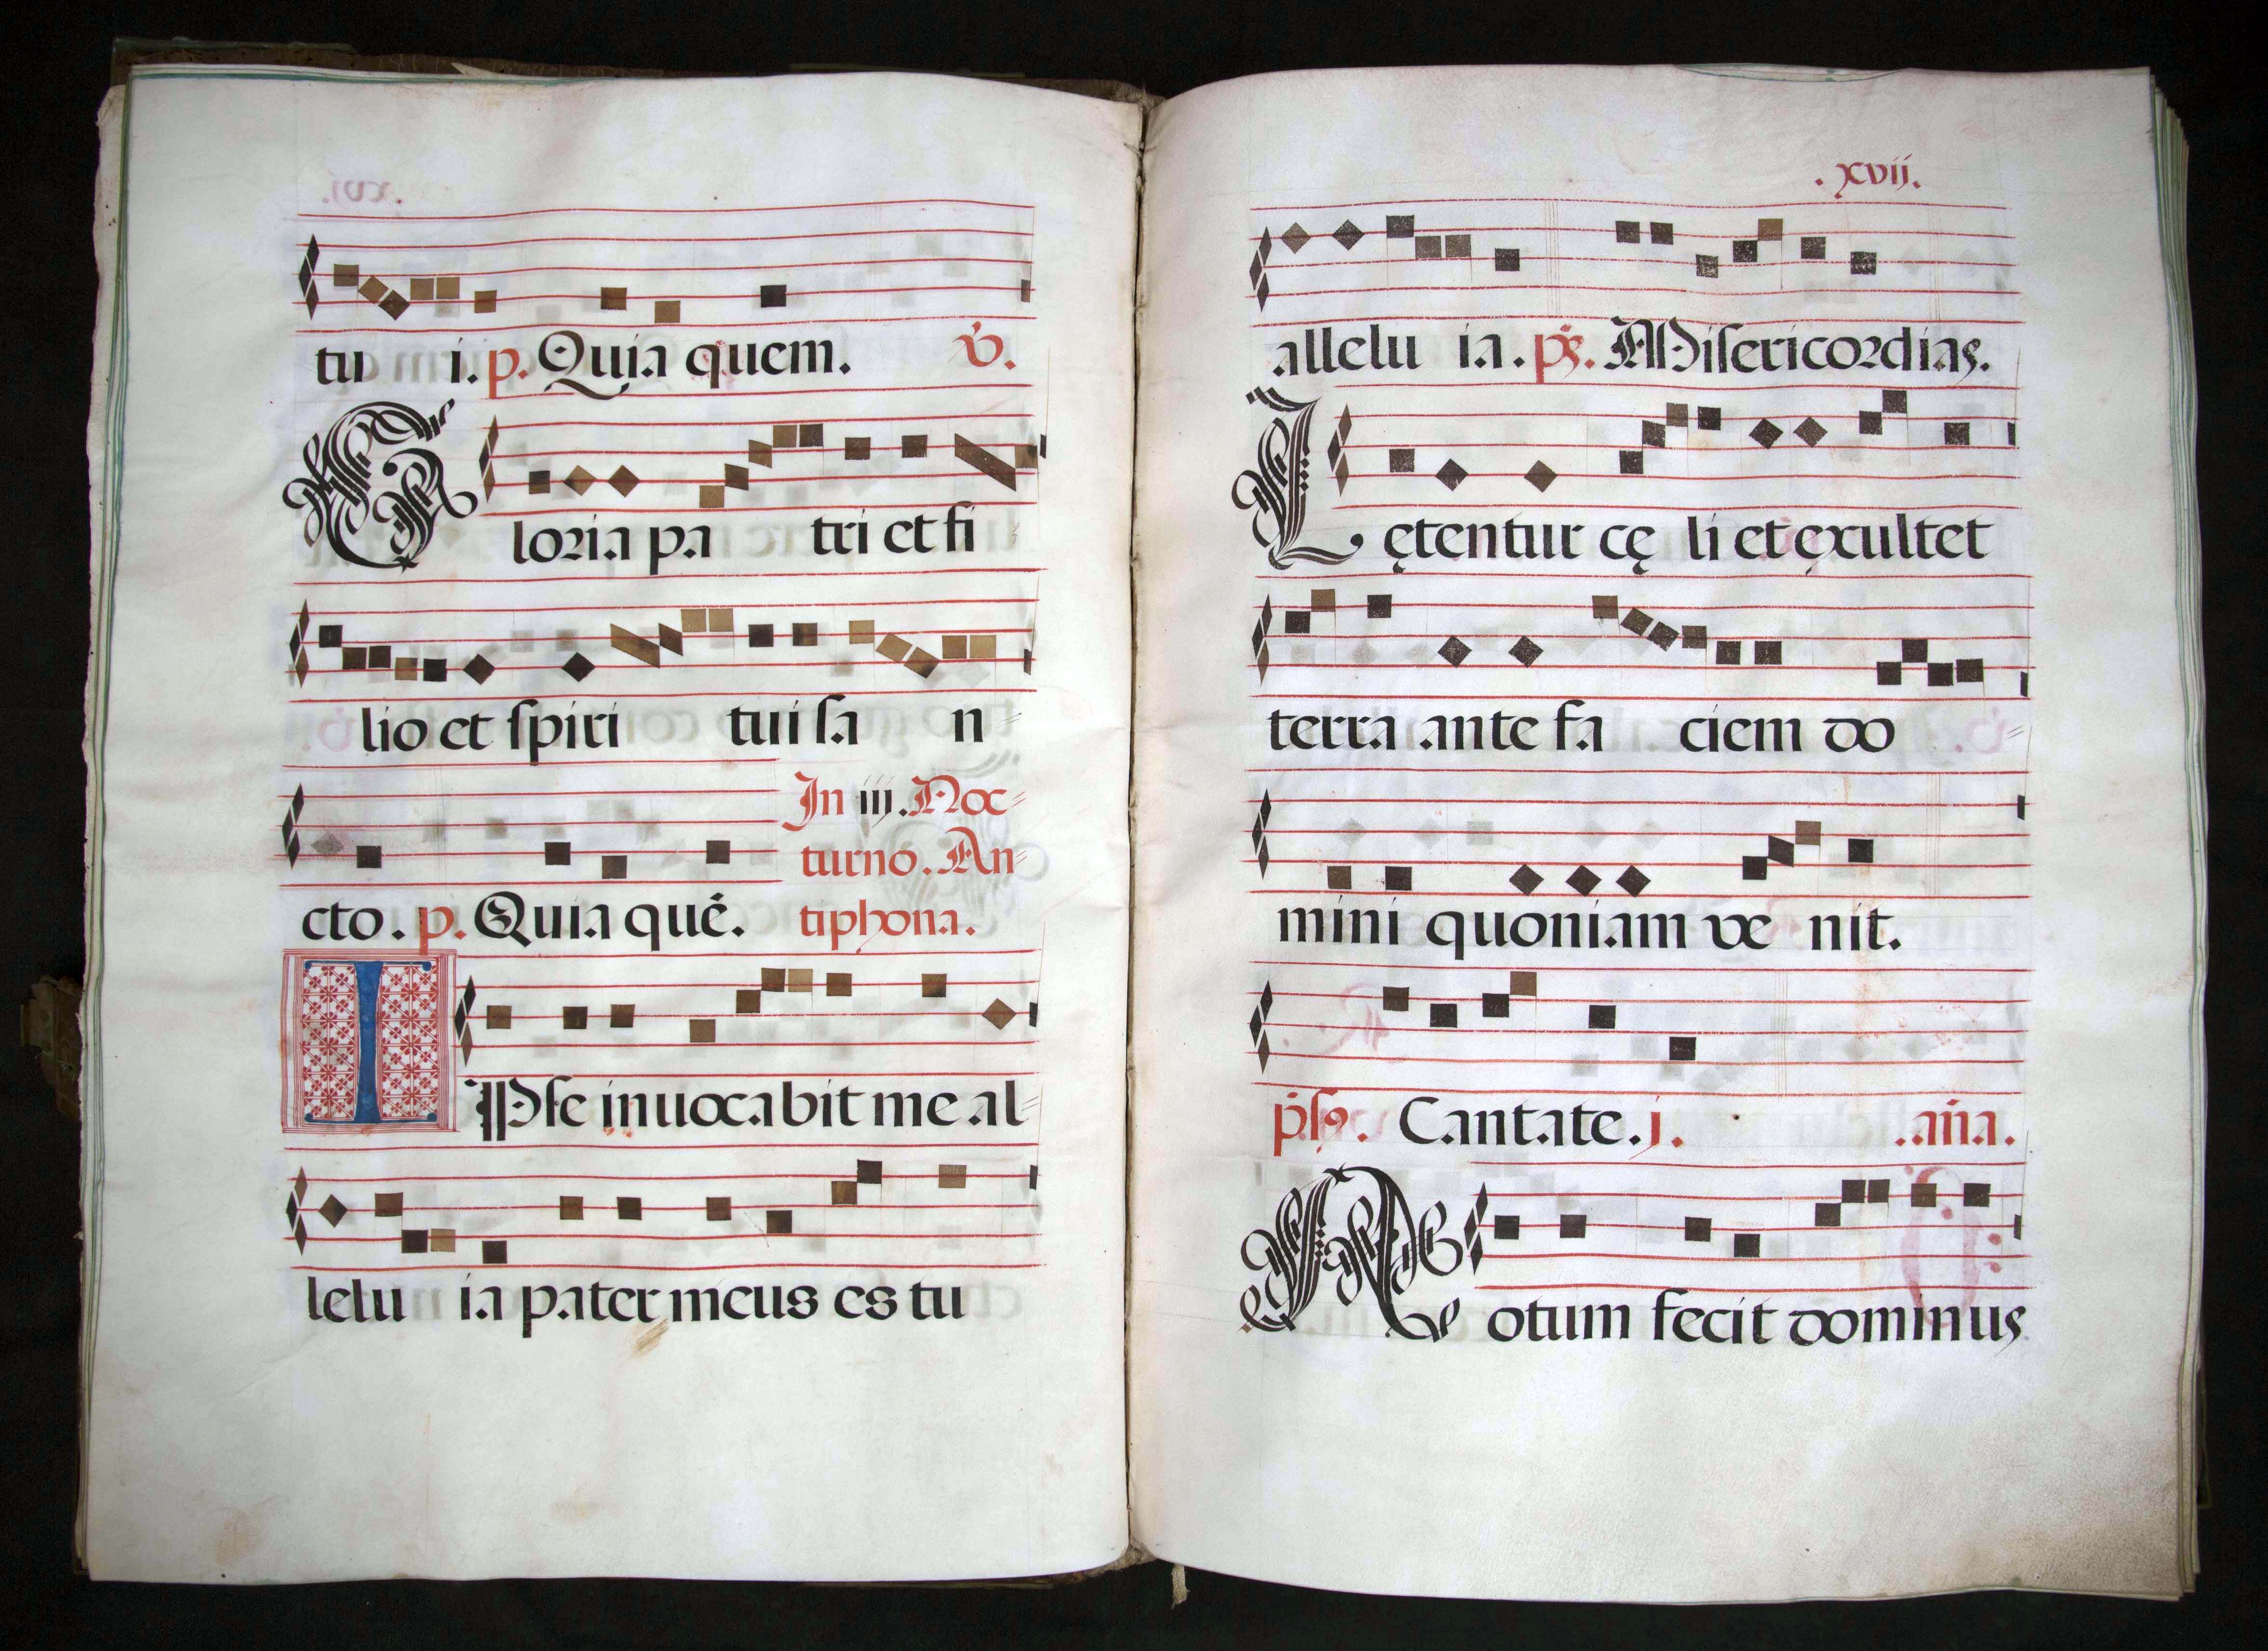 tu i. p. Quia quem. v̇.
Gloria pa tri et fi
lio et ſpiri tui ſa n⸗
In iij. Noc⸗
turno. An⸗
cto. p. Quia quē. tiphona.
IPſe inuocabit me al⸗
lelu ia pater meus es tu
.xvij.
allelu ia. ps. Miſericordias.
Lętentur cę li et ęxultet
terra ante fa ciem do ⸗
mini quoniam ve nit.
Cantate. j. .ana.
Notum fecit dominus